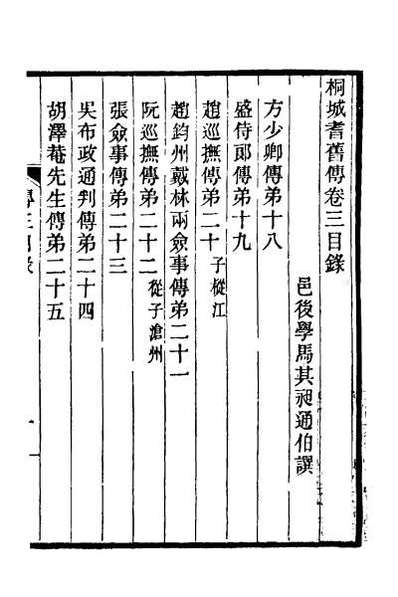 桐城耆舊傳卷三目錄
邑後學馬其昶通伯譔
方少卿傳弟十八
盛侍郎傳弟十九
趙巡撫傳弟二十 子樅江
趙鈞州戴林兩僉事傳弟二十一
阮巡撫傳弟二十二 從子滄州
張僉事傳弟二十三
吳布政通判傳弟二十四
胡澤菴先生傳弟二十五